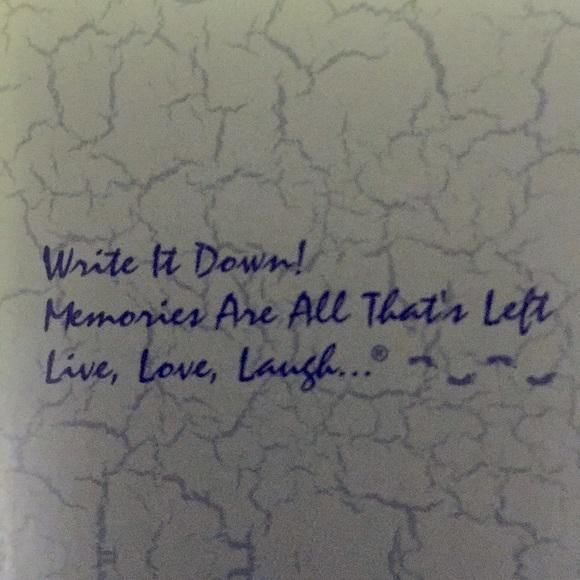 Write It Down!
Memories Are All That's Left
Live, Love, Laugh...®